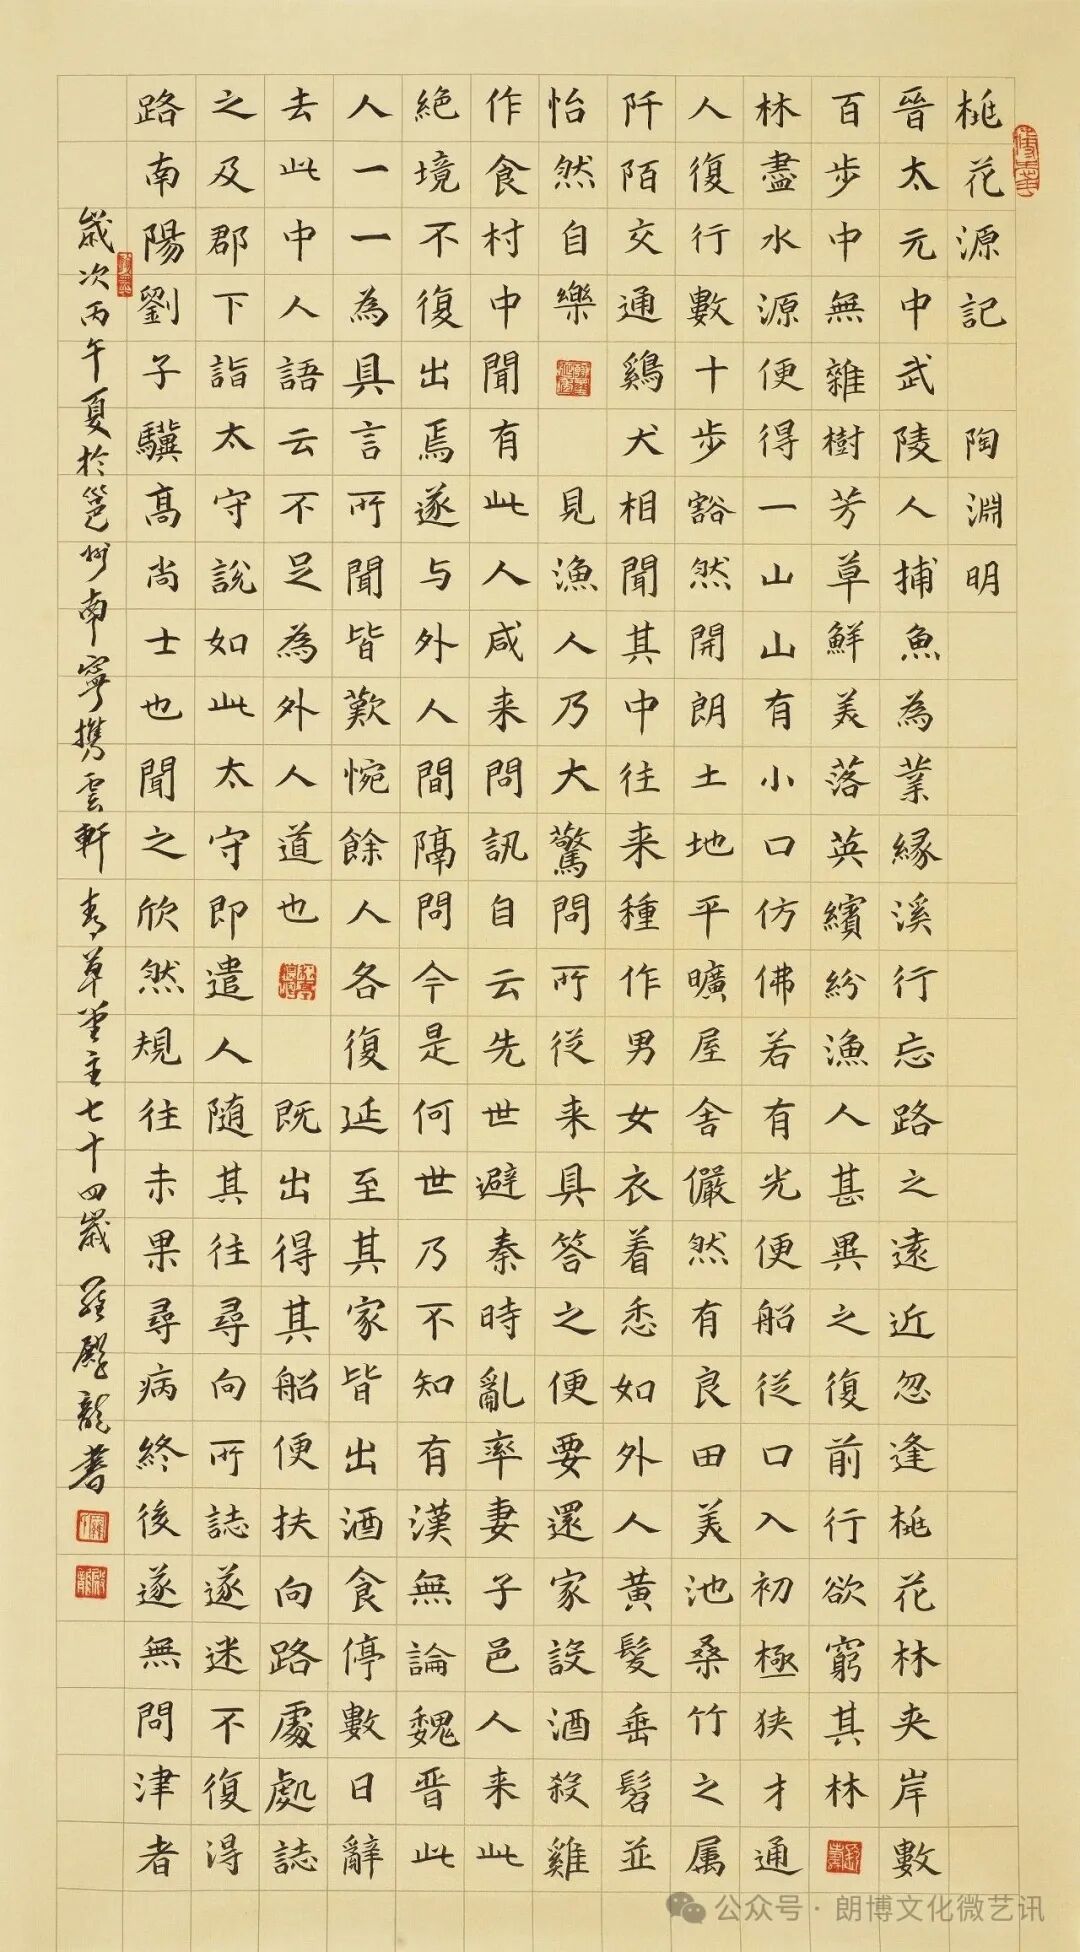 桃花源記 陶淵明
晉太元中武陵人捕魚為業緣溪行忘路之遠近忽逢桃花林夾岸數
百步中無雜樹芳草鮮美落英繽紛漁人甚異之復前行欲窮其林
林盡水源便得一山山有小口仿佛若有光便船從口入初極狹才通
人復行數十步豁然開朗土地平曠屋舍儼然有良田美池桑竹之属
阡陌交通鷄犬相聞其中往来種作男女衣着悉如外人黃髮垂髫並
怡然自樂 見漁人乃大驚問所從来具答之便要還家設酒殺雞
作食村中聞有此人咸来問訊自云先世避秦時亂率妻子邑人来此
絕境不復出焉遂与外人間隔問今是何世乃不知有漢無論魏晉此
人一一為具言所聞皆歎惋餘人各復延至其家皆出酒食停數日辭
去此中人語云不足為外人道也 既出得其船便扶向路處處誌
之及郡下詣太守說如此太守即遣人随其往尋向所誌遂迷不復得
路南陽劉子驥高尚士也聞之欣然規往未果尋病終後遂無問津者
歲次丙午夏於邕州南寧攜雲軒 青草堂主七十四歲 羅殿龍書
公众号·朗博文化微艺讯